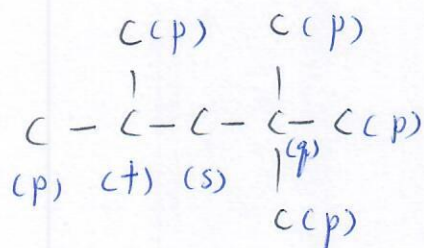 C(p) C(p)
C - C - C - C - C(p)
(p) (t) (s) (q)
C(p)